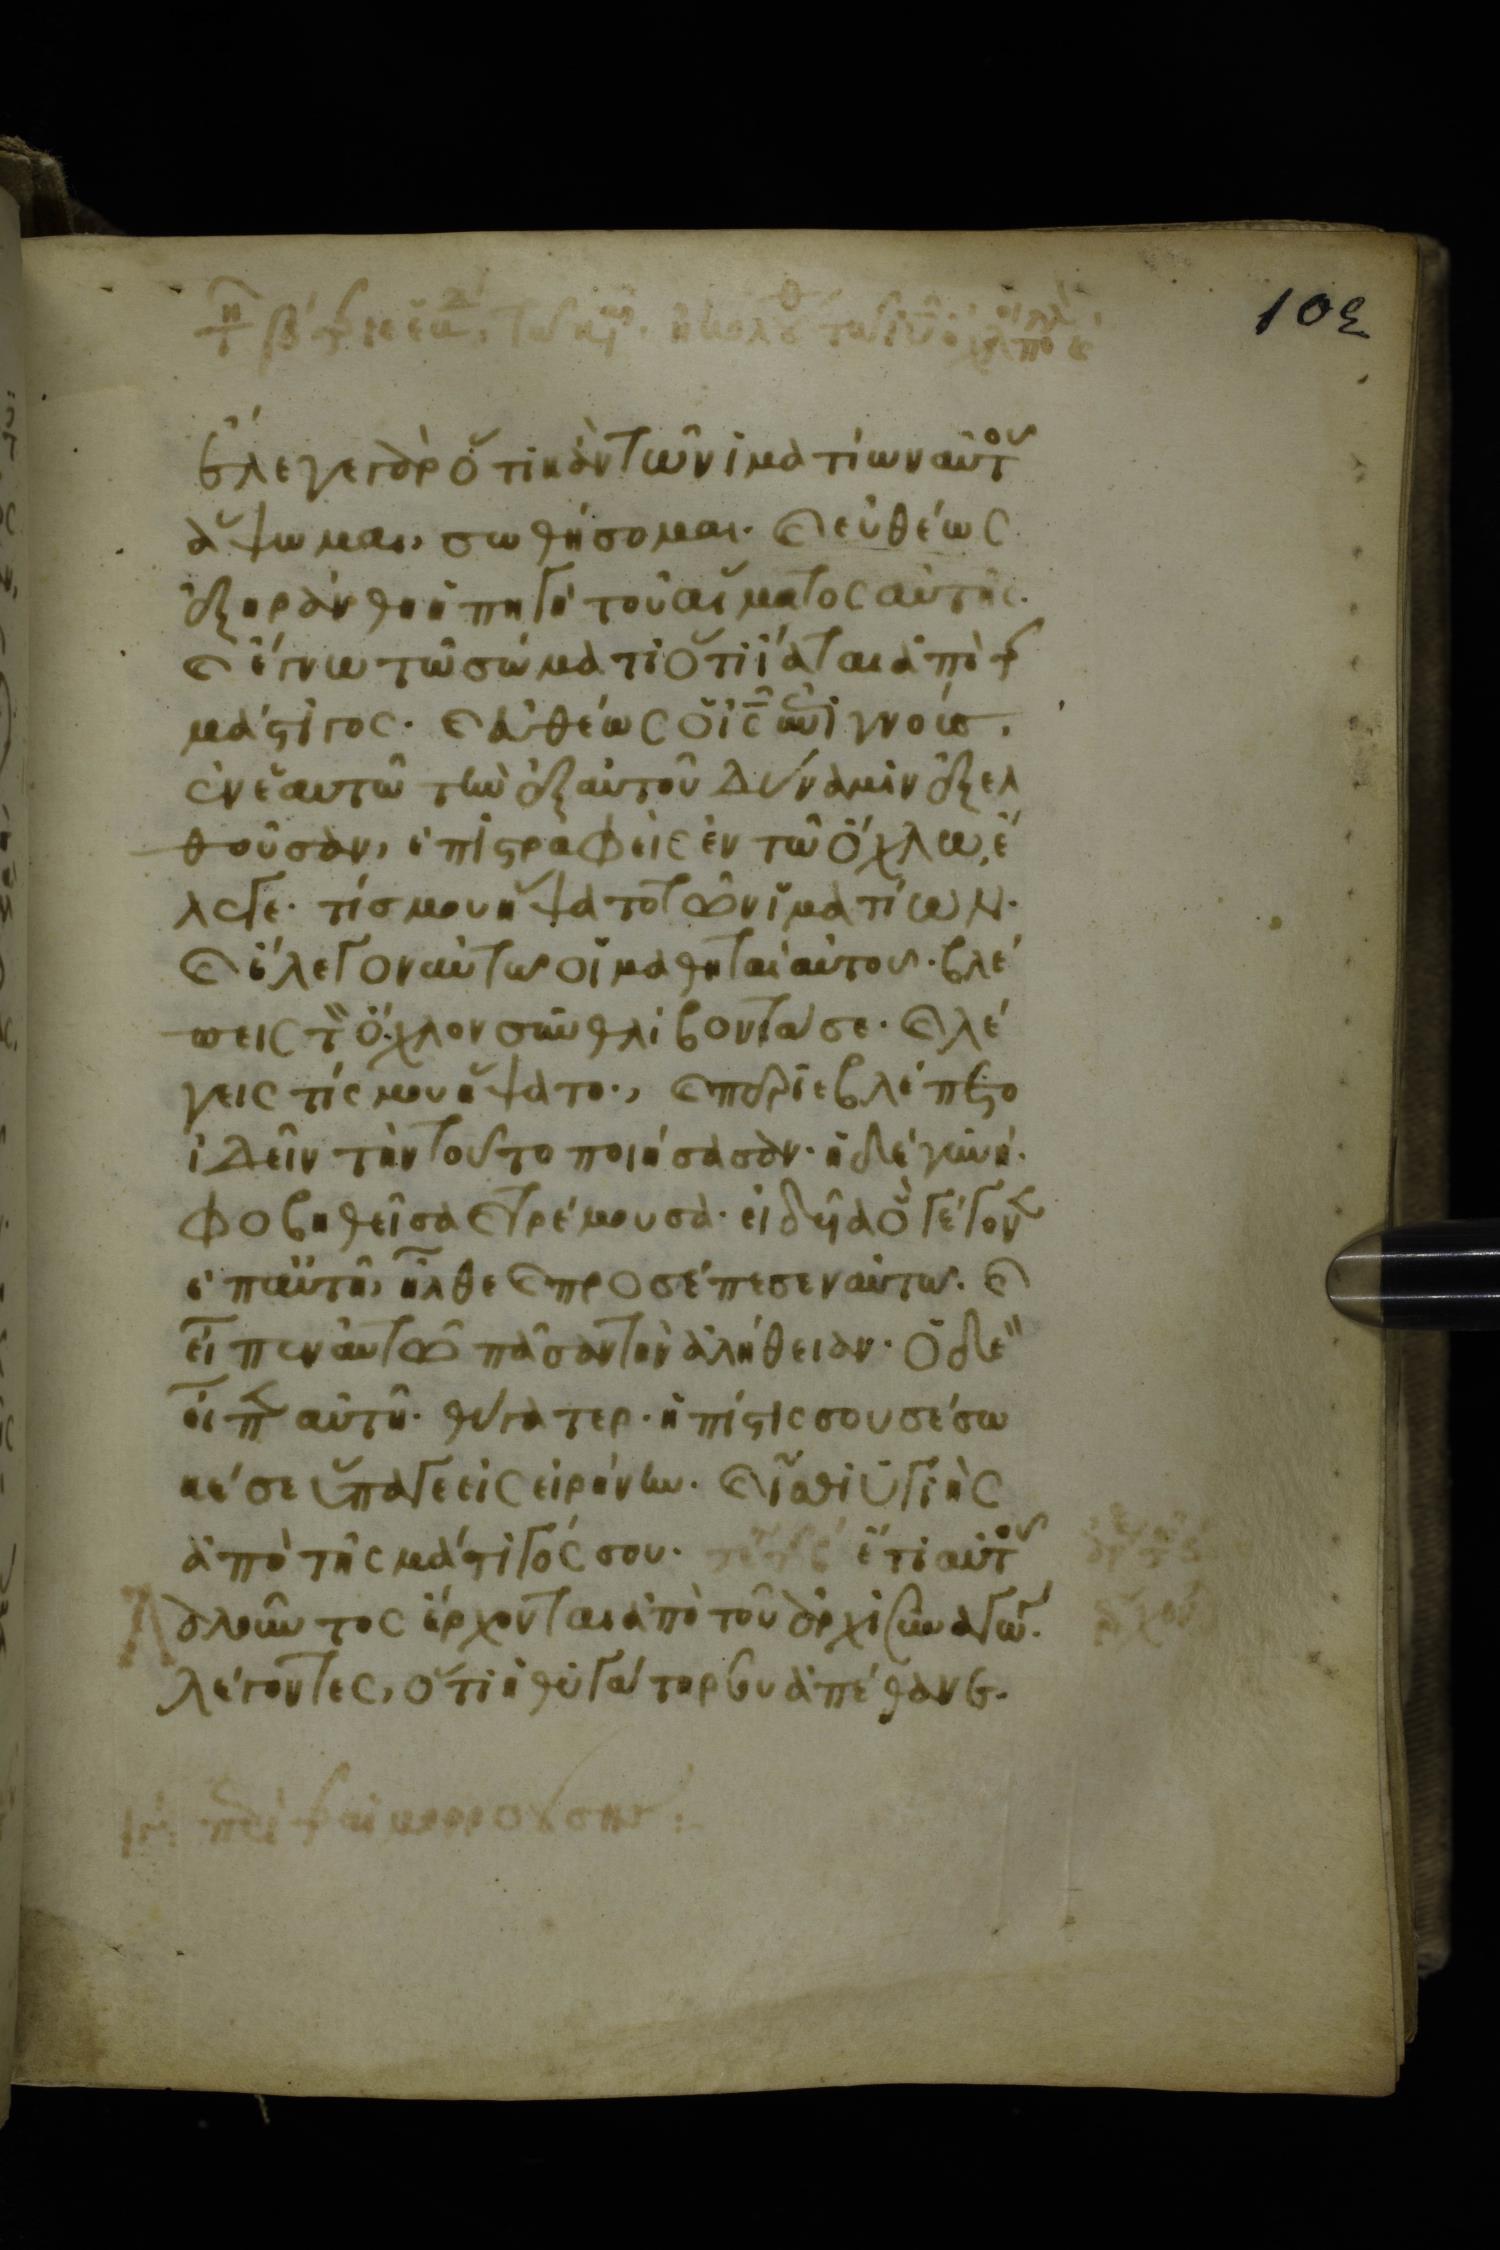 103
ἔλεγε γὰρ ὅτι κἂν τῶν ἱματίων αὐτοῦ
ἅψωμαι, σωθήσομαι. καὶ εὐθέως
ἐξηράνθη ἡ πηγὴ τοῦ αἵματος αὐτῆς.
καὶ ἔγνω τῶ σώματι ὅτι ἴαται ἀπὸ τῆς
μάστιγος. καὶ εὐθέως ὁ ις ἐπιγνοὺς.
ἐν ἑαυτῶ τὴν ἐξ αὐτοῦ δύναμιν ἐξελ
θοῦσαν, ἐπιστραφεὶς ἐν τῶ ὄχλω, ἔ
λεγε. τίς μου ἥψατο τῶν ἱματίων.
καὶ ἔλεγον αὐτῶ οἱ μαθηταὶ αὐτοῦ. βλέ
πεις τὸν ὄχλον συνθλίβοντα σε. καὶ λέ
γεις τίς μου ἥψατο., καὶ περιεβλέπετο
ἰδεῖν τὴν τοῦτο ποιήσασαν. ἡ δὲ γυνὴ.
φοβηθεῖσα καὶ τρέμουσα. εἰδυῖα ὃ γέγονεν
ἐπ αὐτῆ, ἦλθε καὶ προσέπεσεν αὐτῶ. καὶ
εἶπεν αὐτῶ πᾶσαν τὴν ἀλήθειαν. ὁ δὲ
εἶπεν αὐτῆ. θύγατερ. ἡ πίστις σου σέσω
κέ σε ὕπαγε εἰς εἰρήνην. καὶ ἴσθι ὑγιὴς
ἀπὸ τῆς μάστιγός σου. ἔτι αὐτοῦ
λαλοῦντος ἔρχονται ἀπὸ τοῦ ἀρχισυναγώγου.
λέγοντες, ὅτι ἡ θυγάτηρ σου ἀπέθανε.
περὶ τῆς αἱμορροούσης: